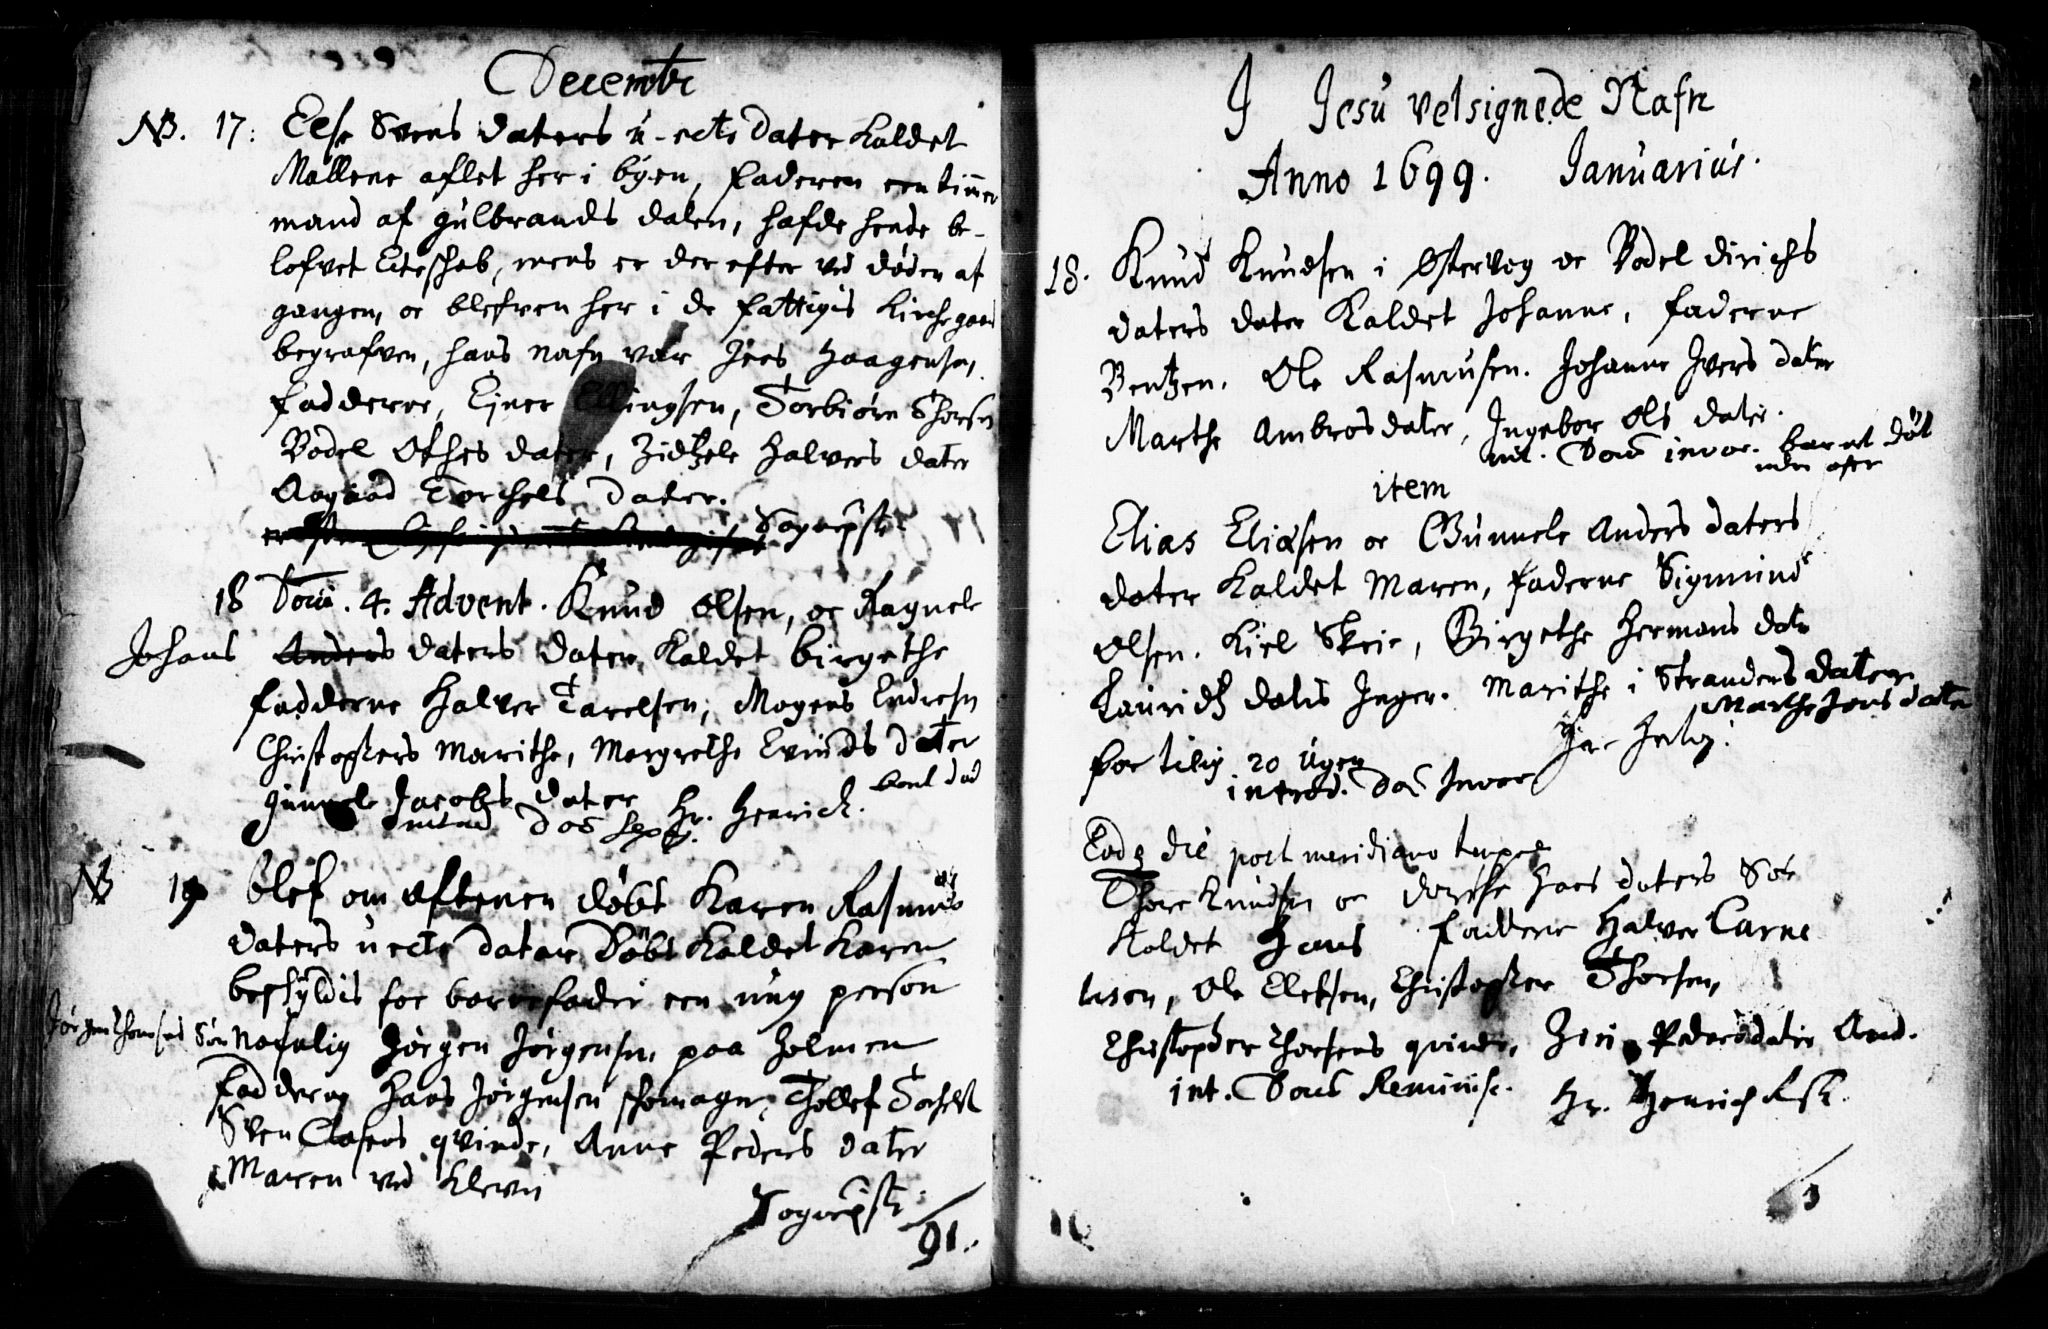 Decembr
NB. 17: Else Svens daters u-ecte dater kaldet
Mallene aflet her i byen, faderen een timmer
mand af gulbrands dalen, hafde hende be-
lofvet Ecteschab, mens er der efter ved døden af
gangen, oc blefven her i de fattigis Kirchegaard
begrafven, hans nafn var Haagensen,
fadderne, Ejner Ellingsen, Torbiørn Thorsen
Bodel Othes dater, Zidtzele Halvers dater
Torchels dater.
18 Dom. 4. Advent. Knud Olsen, oc Ragnele
Johans Anders daters dater kaldet birgethe
fadderne Halver Tarelsen, Mogens Endresen
Christophers Marithe, Margrethe Evinds dater
Gunnele Jacobs dater Hr. Henrich. barnet död
NB 19 blef om aftenen döbt Karen Rasmus
daters uecte dater Döbt kaldet Karen
beskyldis for barnefader een ung person
Jørgen Thomesens Søn nafnlig Jørgen Jørgensen, paa Holmen
Fadderne Hans Jørgensen skomager, Thollef
Sven Clasens qvinde, Anne Peders dater
Maren ved Kleven
91.
I Jesu velsignede Nafn
Anno 1699. Januarius.
18. Knud Knudsen i Østervog oc Bodel dirichs
daters dater kaldet Johanne, faderne
Bentzen. Ole Rasmusen. Johanne Ivers dater
Marthe Ambros dater, Ingebor Ols dater.
int. Dom invoc. barnet döt
item
Elias Eliasen oc Gunnele Anders daters
dater kaldet Maren, faderne Sigmund
Olsen. Kiel Skrie, Birgethe Hermans dater
Lauridtz Inger. Marithe i Strandens dater
Marthe Jons dater
for tilig 20 Ugen
introd. Dom Invoc
Eod die post meridiano
Thore Knudsen oc Dorthe Hans daters Søn
Kaldet Hans Faddere Halver Carne
lusen, Ole Elefsen, Christopher Thorsen,
Christopher Thorsens qvinde, Ziri Peders dater
int. Dom Reminisc. Hr. Henrich